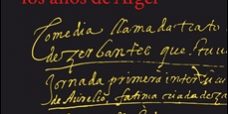 los años de Argel
Comedia llamada trato
de zerbantes que
Jornada primera
de Aurelio, fatima